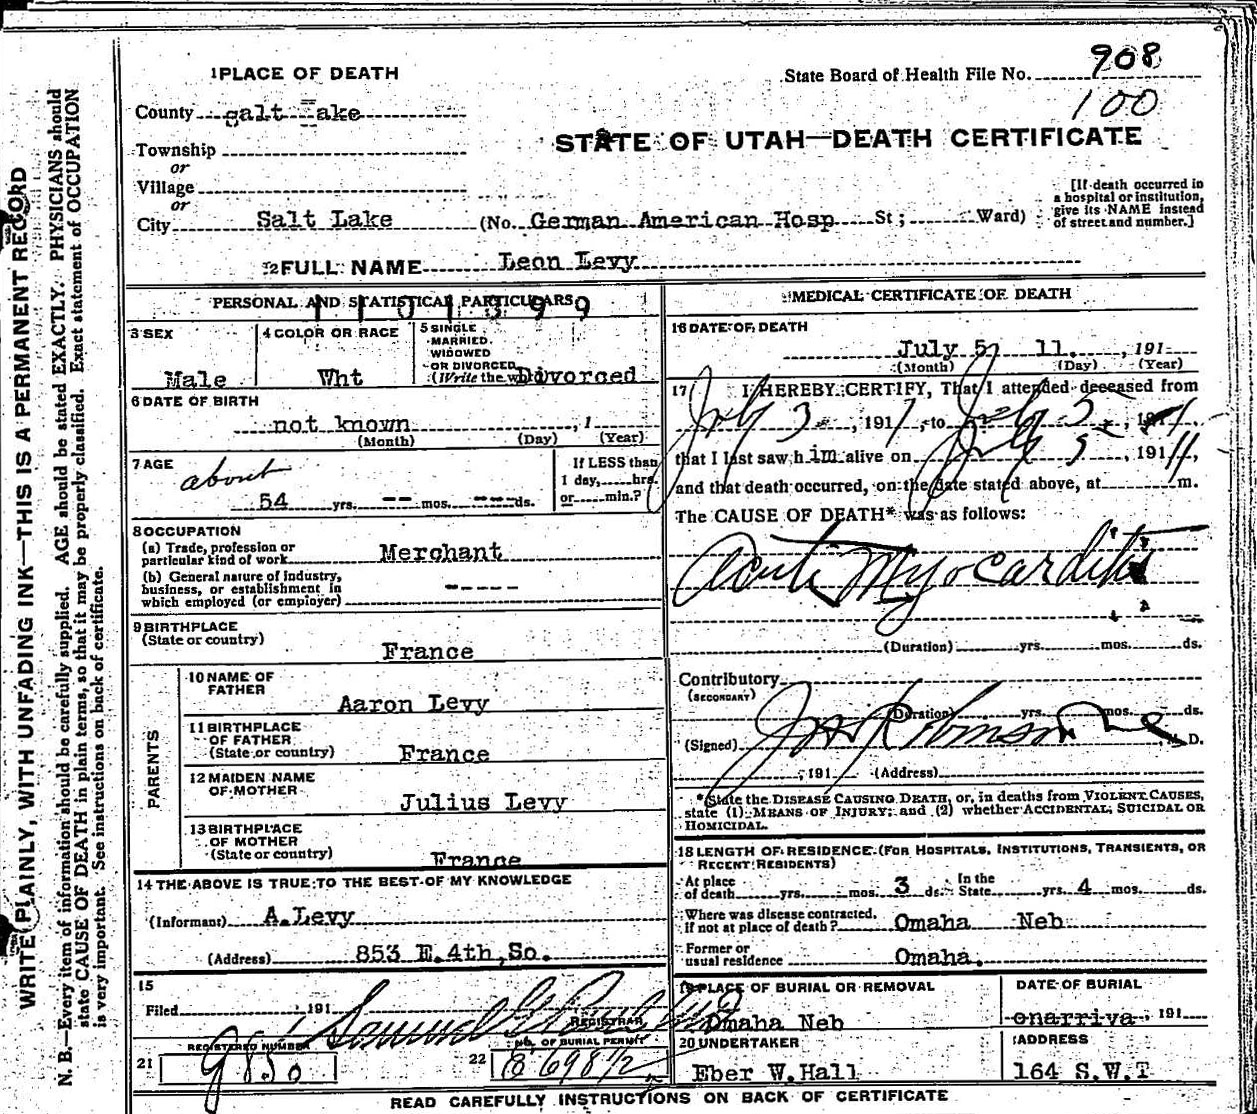 908
1 PLACE OF DEATH
State Board of Health File No.
100
County Salt Lake
STATE OF UTAH—DEATH CERTIFICATE
Township
or
Village
or
[If death occurred in
a hospital or institution,
give its NAME instead
of street and number.]
City Salt Lake (No. German American Hosp St; Ward)
2 FULL NAME Leon Levy
PERSONAL AND STATISTICAL PARTICULARS
1101899
3 SEX
Male
4 COLOR OR RACE
Wht
5 SINGLE
MARRIED,
WIDOWED
OR DIVORCED
(Write the word) Divorced
6 DATE OF BIRTH
not known , 1
(Month) (Day) (Year)
7 AGE
about
54 yrs. -- mos. --- ds.
If LESS than
1 day, hrs.
or min.?
8 OCCUPATION
(a) Trade, profession or
particular kind of work Merchant
(b) General nature of industry,
business, or establishment in
which employed (or employer) -----
9 BIRTHPLACE
(State or country)
France
PARENTS
10 NAME OF
FATHER
Aaron Levy
11 BIRTHPLACE
OF FATHER
(State or country) France
12 MAIDEN NAME
OF MOTHER
Julius Levy
13 BIRTHPLACE
OF MOTHER
(State or country)
France
14 THE ABOVE IS TRUE TO THE BEST OF MY KNOWLEDGE
(Informant) A.Levy
(Address) 853 E.4th,So.
15
Filed , 191
Samuel G
REGISTRAR
REGISTERED NUMBER
21 9850
NO. OF BURIAL PERMIT
22 E 698 1/2
MEDICAL CERTIFICATE OF DEATH
16 DATE OF DEATH
July 5, 11. , 191
(Month) (Day) (Year)
17 I HEREBY CERTIFY, That I attended deceased from
July 3 , 191 1, to July 5 , 1911,
that I last saw him alive on July 5 , 1911,
and that death occurred, on the date stated above, at m.
The CAUSE OF DEATH* was as follows:
Acute Myocarditis
(Duration) yrs. mos. ds.
Contributory
(SECONDARY)
(Duration) yrs. mos. ds.
(Signed) Jos R Robinson , M. D.
, 191 (Address)
*State the DISEASE CAUSING DEATH, or, in deaths from VIOLENT CAUSES,
state (1) MEANS OF INJURY; and (2) whether ACCIDENTAL, SUICIDAL OR
HOMICIDAL.
18 LENGTH OF RESIDENCE (FOR HOSPITALS, INSTITUTIONS, TRANSIENTS, OR
RECENT RESIDENTS)
At place
of death yrs. mos. 3 ds. In the
State yrs. 4 mos. ds.
Where was disease contracted,
if not at place of death? Omaha Neb
Former or
usual residence Omaha.
19 PLACE OF BURIAL OR REMOVAL
Omaha Neb
DATE OF BURIAL
onarriva 191
20 UNDERTAKER
Eber W.Hall
ADDRESS
164 S.W.T
READ CAREFULLY INSTRUCTIONS ON BACK OF CERTIFICATE
WRITE PLAINLY, WITH UNFADING INK—THIS IS A PERMANENT RECORD
N. B.—Every item of information should be carefully supplied. AGE should be stated EXACTLY. PHYSICIANS should
state CAUSE OF DEATH in plain terms, so that it may be properly classified. Exact statement of OCCUPATION
is very important. See instructions on back of certificate.